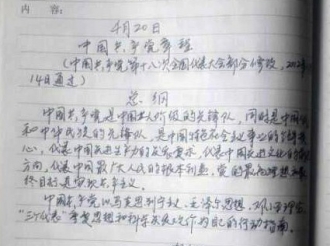 内 容：
4月20日
中国共产党章程
（中国共产党第十八次全国代表大会部分修改，2012年
14日通过）
总 纲
中国共产党是中国工人阶级的先锋队，同时是中国
和中华民族的先锋队，是中国特色社会主义事业的领导核
心，代表中国先进生产力的发展要求，代表中国先进文化的前进
方向，代表中国最广大人民的根本利益。党的最高理想和最
终目标是实现共产主义。
中国共产党以马克思列宁主义、毛泽东思想、邓小平理论、
“三个代表”重要思想和科学发展观作为自己的行动指南。